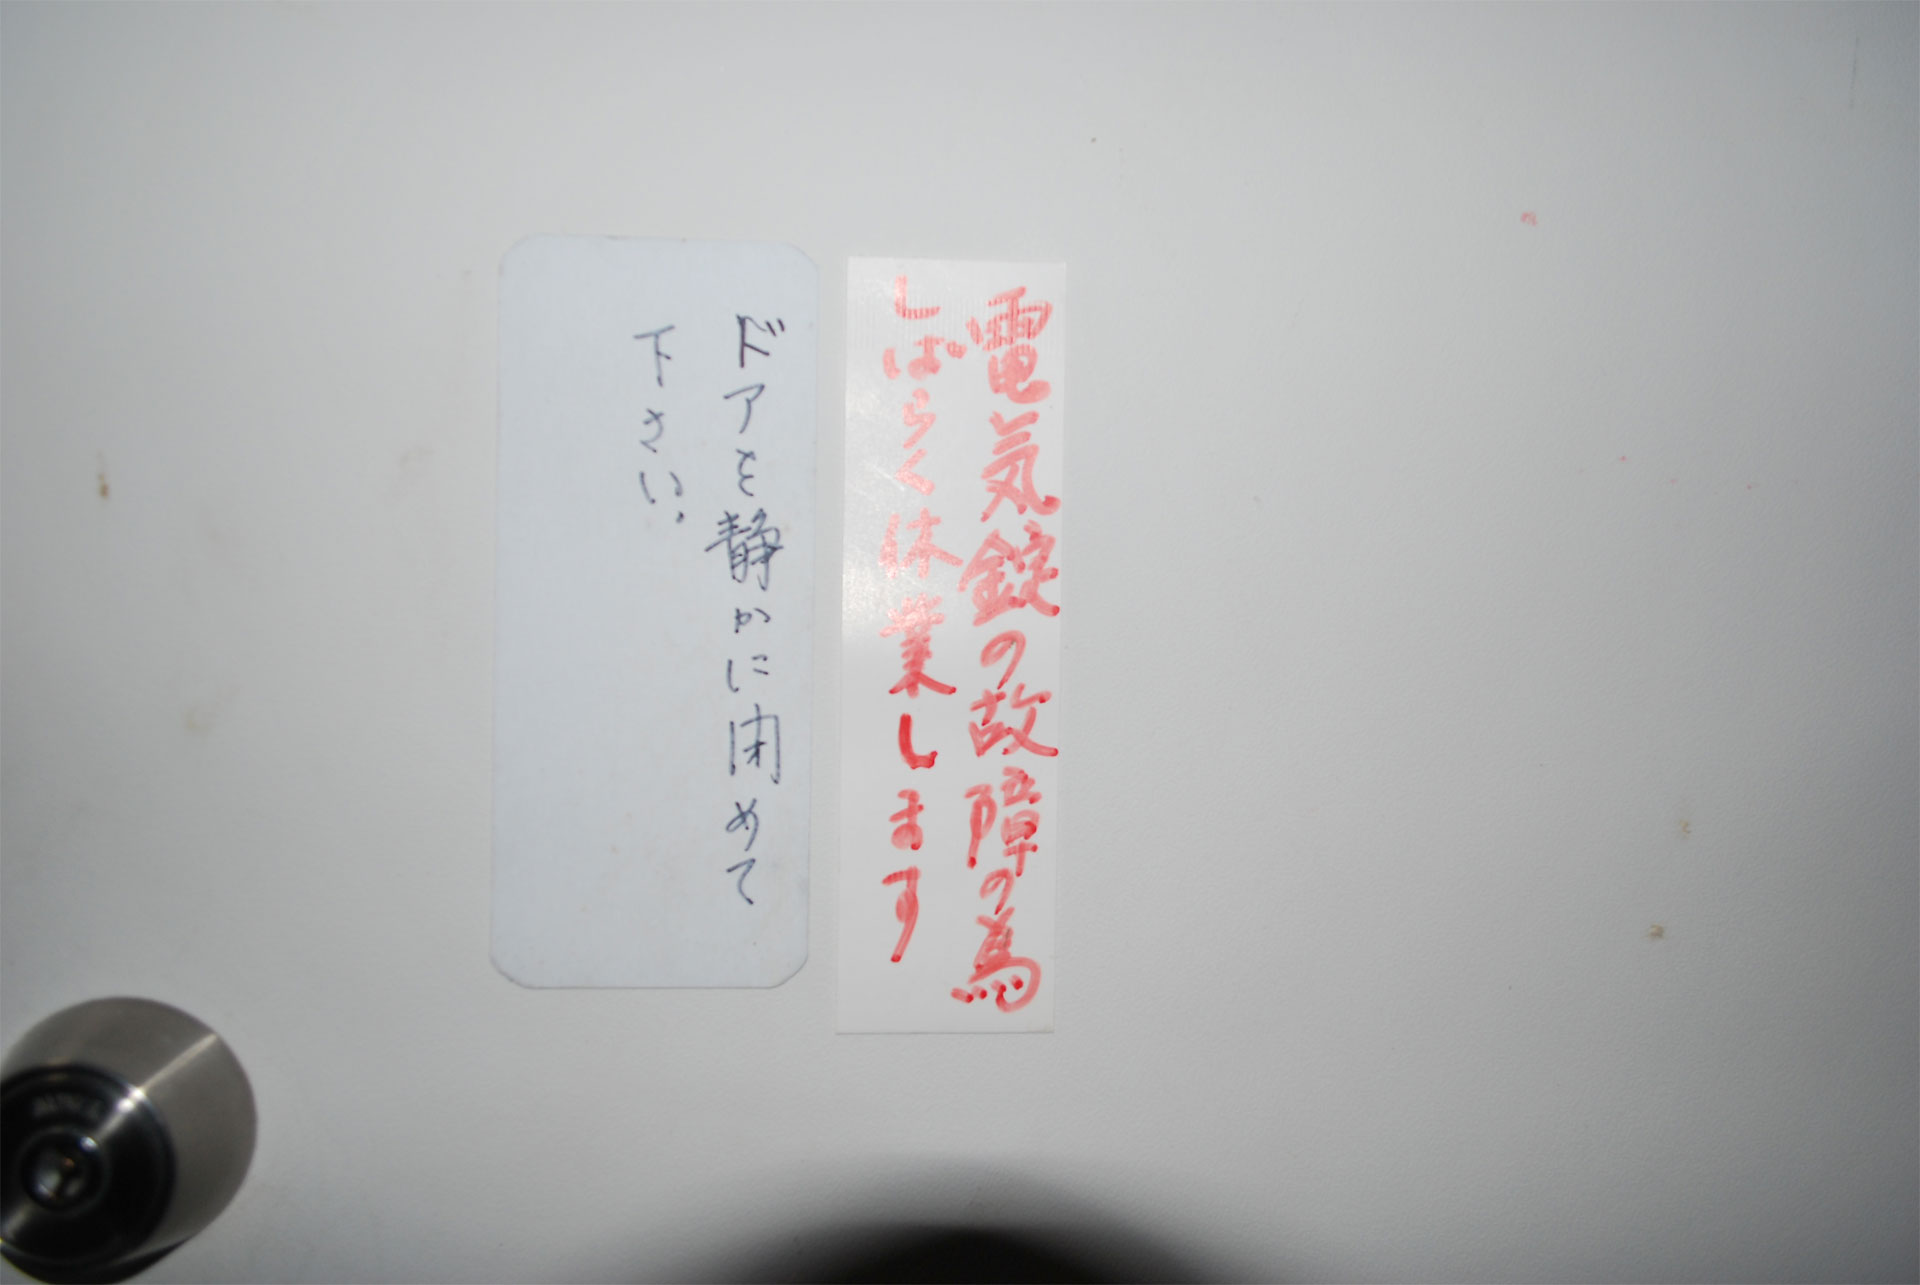 電気錠の故障の為
しばらく休業します
ドアを静かに閉めて
下さい。